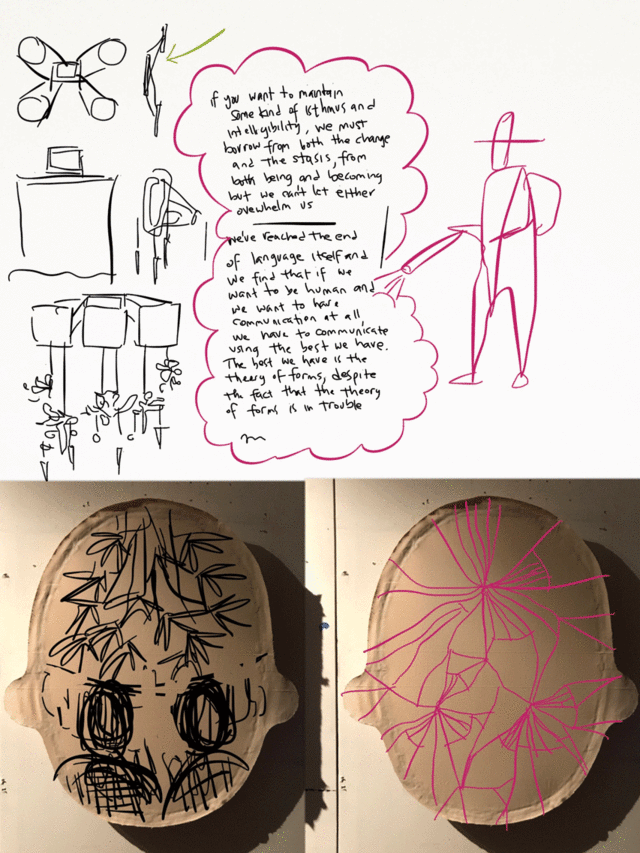 if you want to maintain
some kind of isthmus and
intelligibility, we must
borrow from both the change
and the stasis, from
both being and becoming
but we can't let either
overwhelm us
we've reached the end
of language itself and
we find that if we
want to be human and
we want to have
communication at all,
we have to communicate
using the best we have.
The best we have is the
theory of forms, despite
the fact that the theory
of forms is in trouble